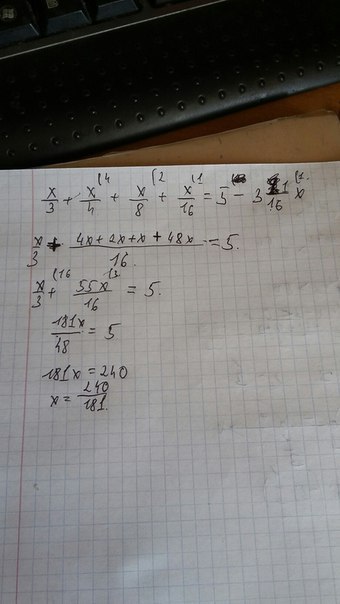 x/3 + x/4 (4 + x/8 (2 + x/16 (1 = 5 - 3 1/16 (1 x
x/3 + (4x + 2x + x + 48x)/16 = 5.
x/3 (16 + 55x/16 (3 = 5.
181x/48 = 5
181x = 240
x = 240/181.